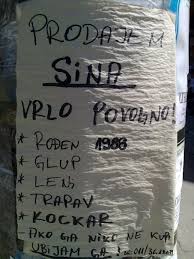 PRODAJEM
SINA
VRLO POVOLJNO!
* ROĐEN 1986
* GLUP
* LENJ
* TRAPAV
* KOCKAR
- AKO GA NIKO NE KUPI
UBIJAM GA!